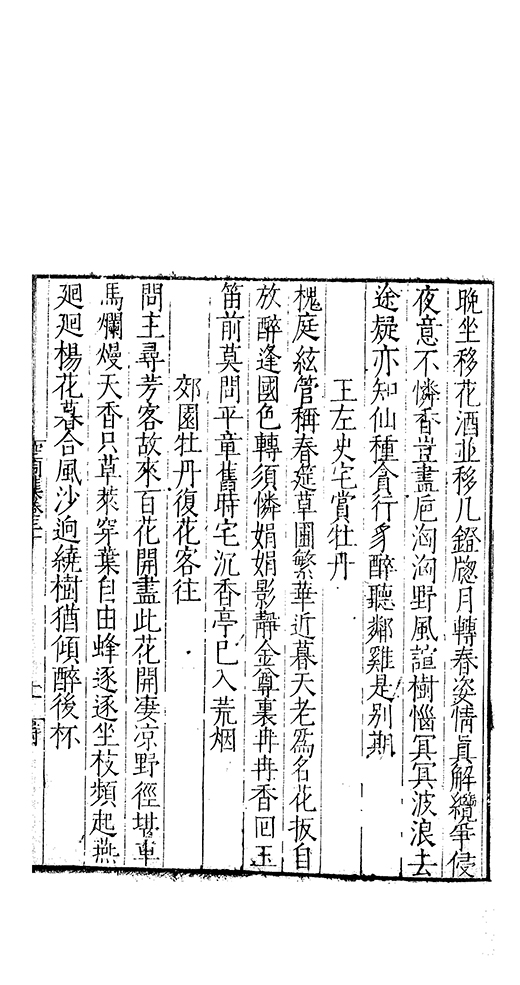 晚坐移花酒並移几鐙牕月轉春姿情眞解纜爭侵
夜意不憐香豈盡巵洶洶野風諠樹惱冥冥波浪去
途疑亦知仙種貪行多醉聽鄰雞是別期
王左史宅賞牡丹
槐庭絃管稱春筵草圃繁華近暮天老爲名花扳自
放醉逢國色轉須憐娟娟影靜金尊裏冉冉香回玉
笛前莫問平章舊時宅沉香亭已入荒烟
郊園牡丹復花客往
問主尋芳客故來百花開盡此花開凄凉野徑堪車
馬爛熳天香只草萊穿葉自由蜂逐逐坐枝頻起燕
廻廻楊花暮合風沙逈繞樹猶傾醉後杯